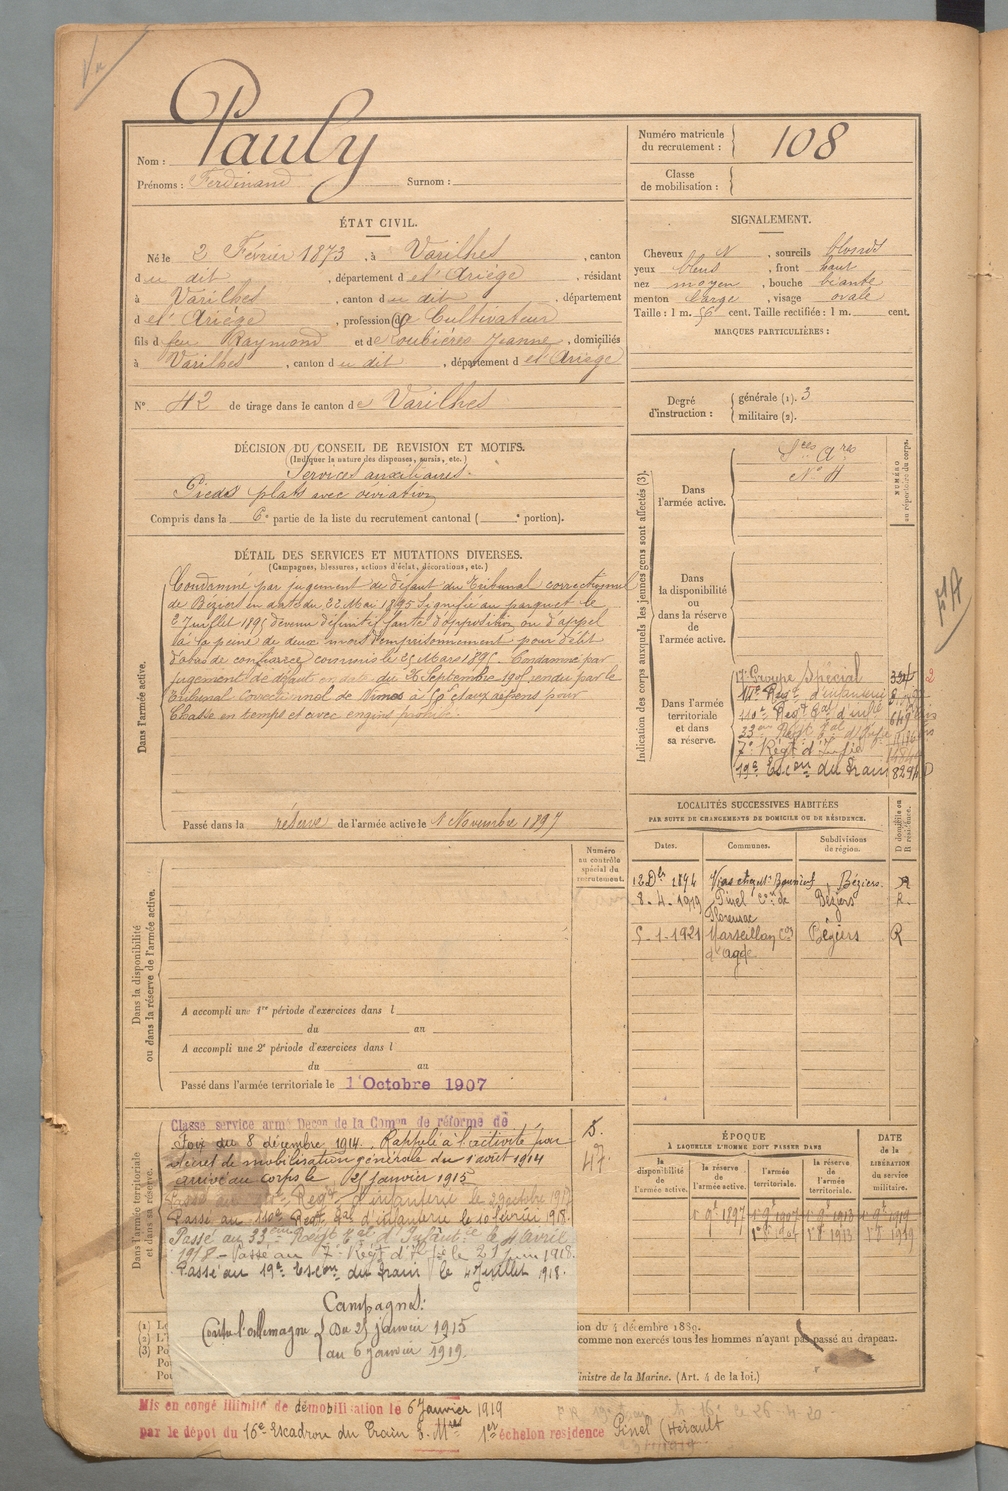 Pauly
Nom :
Prénoms : Ferdinand Surnom :
Numéro matricule du recrutement : 108
Classe de mobilisation :
ÉTAT CIVIL.
Né le 2 Février 1873, à Varilhes, canton
du dit, département de l'Ariège, résidant
à Varilhes, canton du dit, département
de l'Ariège, profession de Cultivateur
fils de feu Raymond et de Coubières Jeanne, domiciliés
à Varilhes, canton du dit, département de l'Ariège
N° 42 de tirage dans le canton de Varilhes
SIGNALEMENT.
Cheveux N, sourcils blonds
yeux bleus, front haut
nez moyen, bouche béante
menton large, visage ovale
Taille : 1 m. 56 cent. Taille rectifiée : 1 m. cent.
MARQUES PARTICULIÈRES :
Degré d'instruction : générale (1). 3
militaire (2).
DÉCISION DU CONSEIL DE REVISION ET MOTIFS.
(Indiquer la nature des dispenses, sursis, etc.)
Services auxiliaires.
Pieds plats avec déviation
Compris dans la 6e partie de la liste du recrutement cantonal ( e portion).
DÉTAIL DES SERVICES ET MUTATIONS DIVERSES.
(Campagnes, blessures, actions d'éclat, décorations, etc.)
Dans l'armée active.
Condamné par jugement de défaut du Tribunal correctionnel
de Béziers en date du 22 Mai 1895 signifié au parquet le
2 Juillet 1895 devenu définitif faute d'opposition ou d'appel
à la peine de deux mois d'emprisonnement pour délit
d'abus de confiance commis le 25 Mars 1895. Condamné par
jugement de défaut en date du 26 Septembre 1905 rendu par le
Tribunal correctionnel de Nimes à 50 f et aux dépens pour
Chasse en temps et avec engins prohibés
Passé dans la réserve de l'armée active le 1 Novembre 1897
Indication des corps auxquels les jeunes gens sont affectés (3).
NUMÉRO au répertoire du corps.
Dans l'armée active.
Sces Ares
N° 4
Dans la disponibilité ou dans la réserve de l'armée active.
Dans l'armée territoriale et dans sa réserve.
17e Groupe Spécial
110e Régt tal d'infie
33me Régt tal d'Infie
7e Régt d'Infie
19e Escon du Train
FA
LOCALITÉS SUCCESSIVES HABITÉES
PAR SUITE DE CHANGEMENTS DE DOMICILE OU DE RÉSIDENCE.
D domicile ou R résidence.
Dates. Communes. Subdivisions de région.
12 Dbre 1894 Béziers. R
8-4-1919 Pinet Con de Florensac Béziers R.
5-1-1921 Marseillan Con d'Agde Béziers R
Dans la disponibilité ou dans la réserve de l'armée active.
Numéro au contrôle spécial du recrutement.
A accompli une 1re période d'exercices dans l
du au
A accompli une 2e période d'exercices dans l
du au
Passé dans l'armée territoriale le 1 Octobre 1907
Dans l'armée territoriale et dans sa réserve.
Classé service armé Décon de la Comon de réforme de
Foix du 8 décembre 1914. Rappelé à l'activité par
décret de mobilisation générale du 1 août 1914
arrivé au corps le 25 janvier 1915
Passé au 110e Régt tal d'infanterie le 10 février 1918.
Passé au 33eme Régt tal d'Infanterie le 4 avril
1918 - Passé au 7e Régt d'Infie le 21 juin 1918.
Passé au 19e Escon du Train le 4 Juillet 1918.
Campagnes:
Contre l'allemagne Du 25 janvier 1915
au 6 janvier 1919.
ÉPOQUE
À LAQUELLE L'HOMME DOIT PASSER DANS
DATE de la LIBÉRATION du service militaire.
la disponibilité de l'armée active.
la réserve de l'armée active.
l'armée territoriale.
la réserve de l'armée territoriale.
(1) (2) (3)
ion du 4 décembre 1889.
comme non exercés tous les hommes n'ayant pas passé au drapeau.
inistre de la Marine. (Art. 4 de la loi.)
Mis en congé illimité de démobilisation le 6 Janvier 1919
par le dépot du 16e Escadron du Train 1er échelon residence Pinet (Hérault